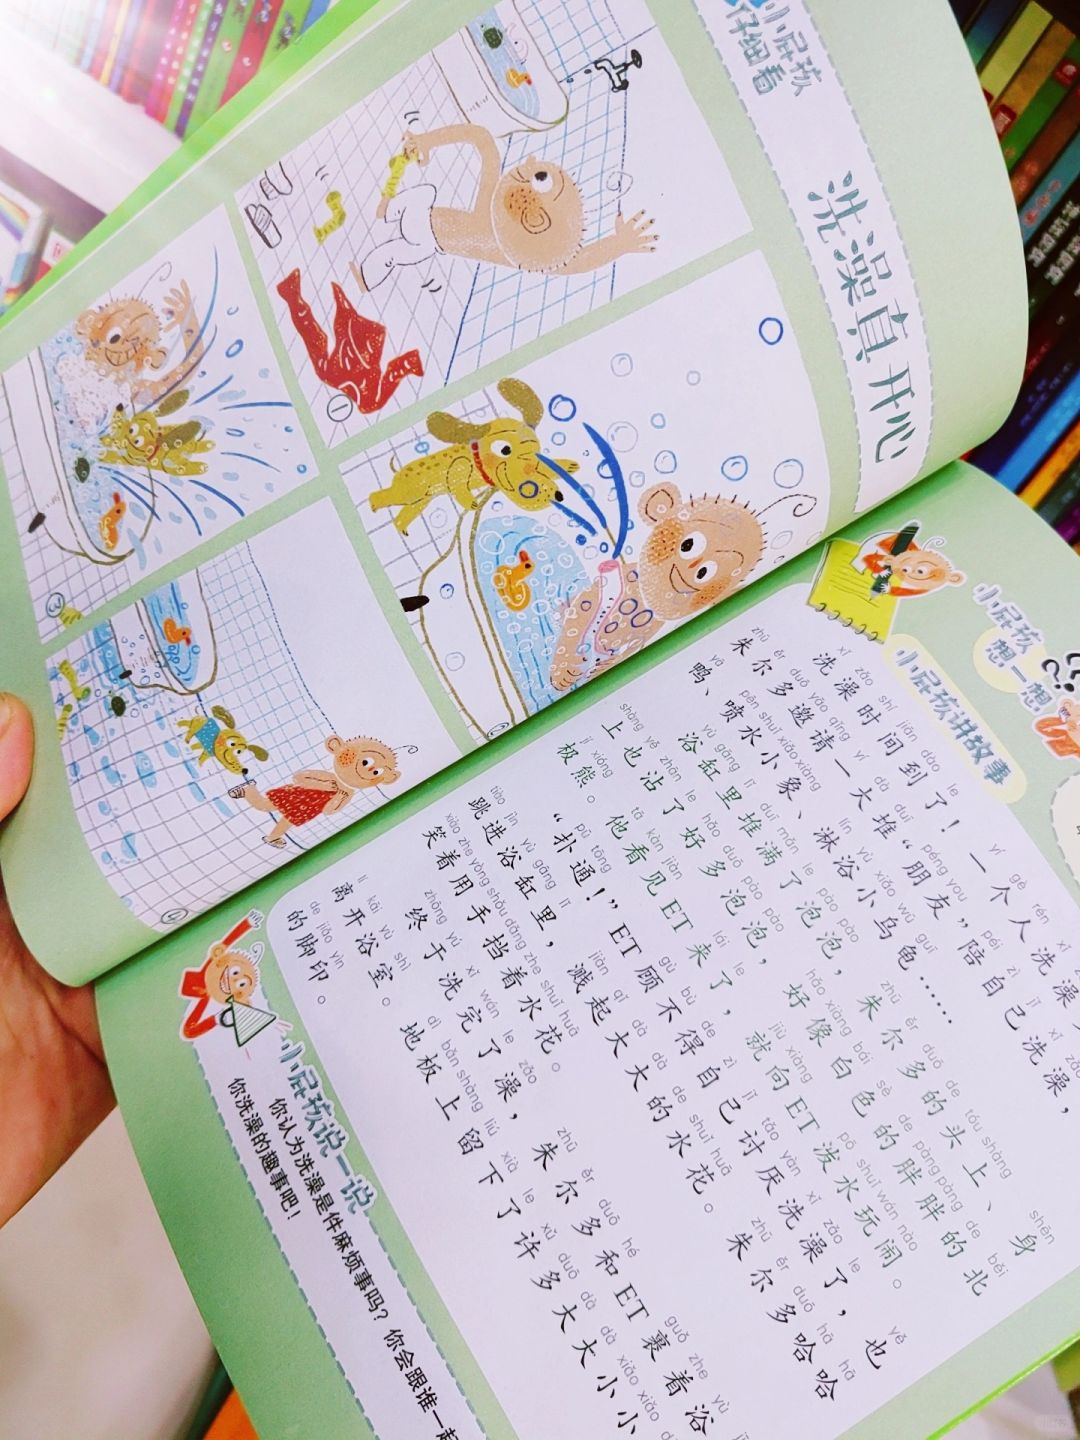 小屁孩
仔细看
洗澡真开心
①
③
④
小屁孩
想一想
小屁孩讲故事
xǐ zǎo shí jiān dào le yí gè rén xǐ zǎo
洗澡时间到了！一个人洗澡
zhū ěr duō yāo qǐng yí dà duī péng you péi zì jǐ xǐ zǎo
朱尔多邀请一大堆“朋友”陪自己洗澡，
yā pēn shuǐ xiǎo xiàng lín yù xiǎo wū guī
鸭、喷水小象、淋浴小乌龟……
yù gāng lǐ duī mǎn le pào pào zhū ěr duō de tóu shàng shēn
浴缸里堆满了泡泡，朱尔多的头上、身
shàng yě zhān le hǎo duō pào pào hǎo xiàng bái sè de pàng pàng de běi
上也沾了好多泡泡，好像白色的胖胖的北
jí xióng tā kàn jiàn lái le jiù xiàng pō shuǐ wán nào
极熊。他看见ET来了，就向ET泼水玩闹。
pū tōng gù bù de zì jǐ tǎo yàn xǐ zǎo le yě
“扑通！”ET顾不得自己讨厌洗澡了，也
tiào jìn yù gāng lǐ jiàn qǐ dà dà de shuǐ huā zhū ěr duō hā hā
跳进浴缸里，溅起大大的水花。朱尔多哈哈
xiào zhe yòng shǒu dǎng zhe shuǐ huā
笑着用手挡着水花。
zhōng yú xǐ wán le zǎo zhū ěr duō hé guǒ zhe yù
终于洗完了澡，朱尔多和ET裹着浴
lí kāi yù shì dì bǎn shàng liú xià le xǔ duō dà dà xiǎo xiǎo
离开浴室。地板上留下了许多大大小小
de jiǎo yìn
的脚印。
小屁孩说一说
你认为洗澡是件麻烦事吗？你会跟谁一起
你洗澡的趣事吧！